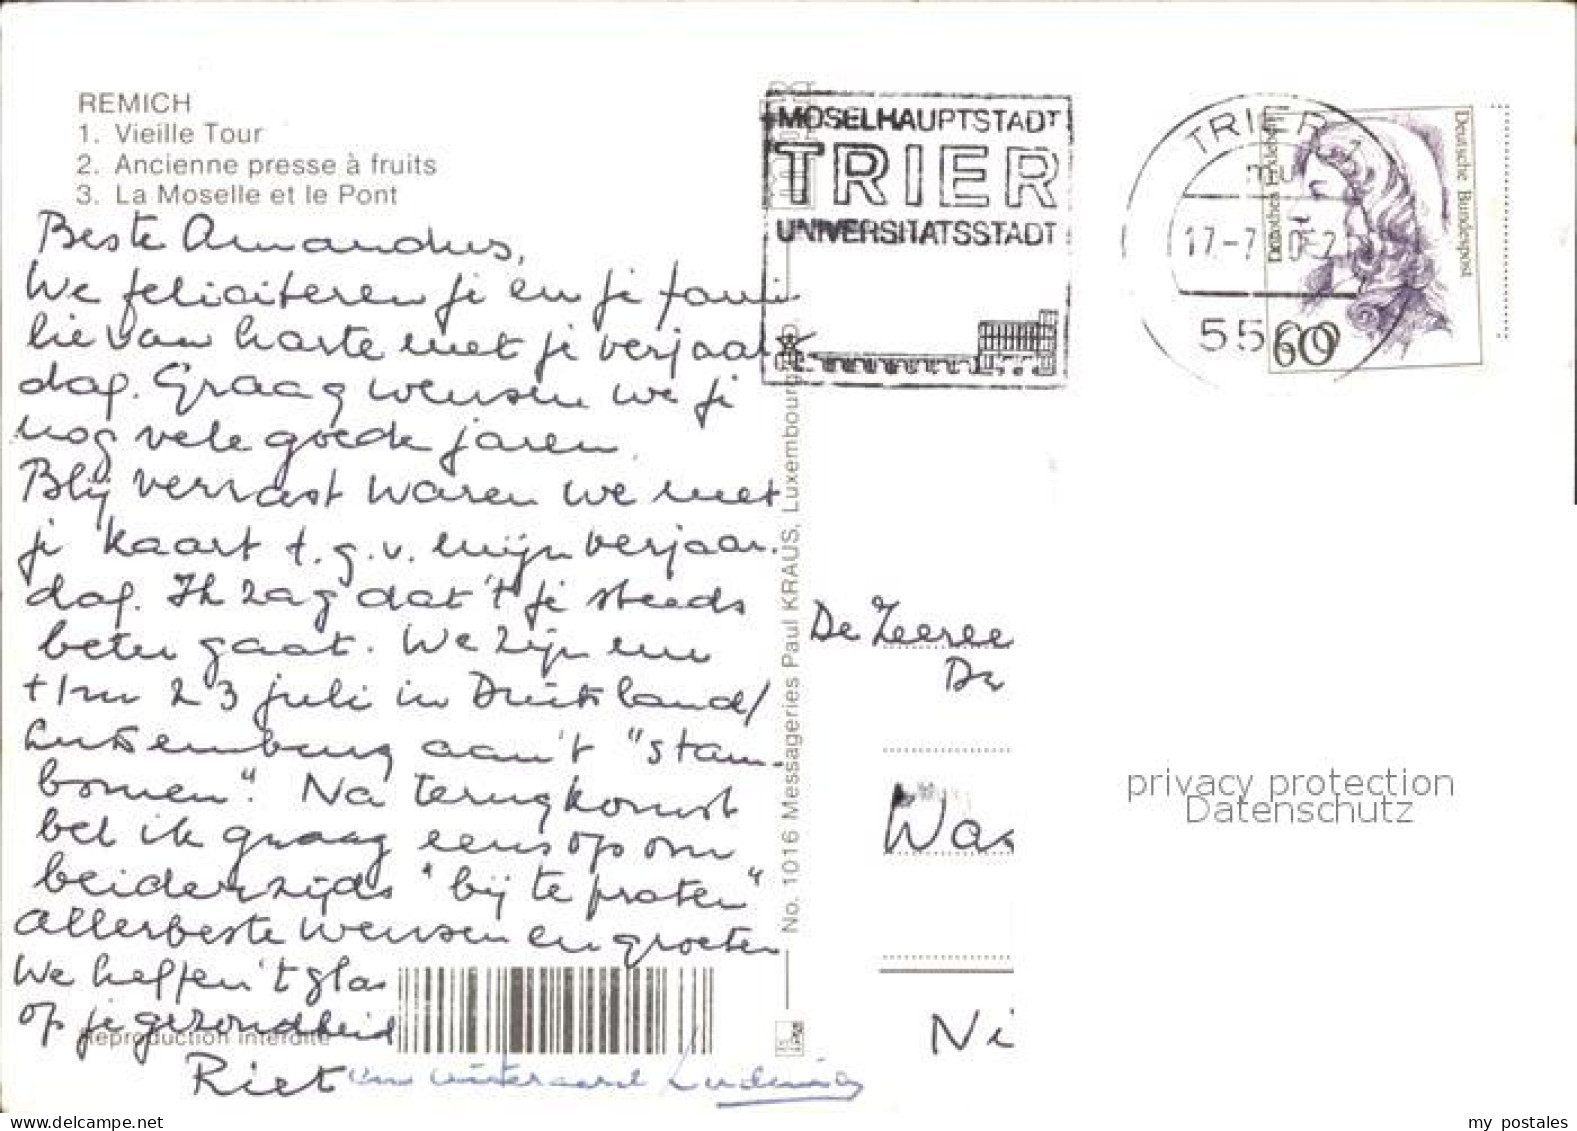 REMICH
1. Vieille Tour
2. Ancienne presse à fruits
3. La Moselle et le Pont
Beste Amandus,
We feliciteren je en je fami-
lie van harte met je verjaar-
dag. Graag wensen we je
nog vele goede jaren.
Blij verrast waren we met
je kaart t.g.v. mijn verjaar-
dag. Ik zag dat 't je steeds
beter gaat. We zijn nu
t/m 23 juli in Duitsland/
Luxemburg aan 't "stam-
bomen". Na terugkomst
bel ik graag eens op om
beiderzijds "bij te praten"
Allerbeste wensen en groeten
We heffen 't glas
op je gezondheid
Reproduction interdite
Riet en uiteraard Ludewig
No. 1016 Messageries Paul KRAUS, Luxembourg
MOSELHAUPTSTADT
TRIER
UNIVERSITÄTSSTADT
TRIER 1
17.-7.
55
Deutsche Bundespost
60
De Zeeree
De
Was
Ni
privacy protection
Datenschutz
my postales